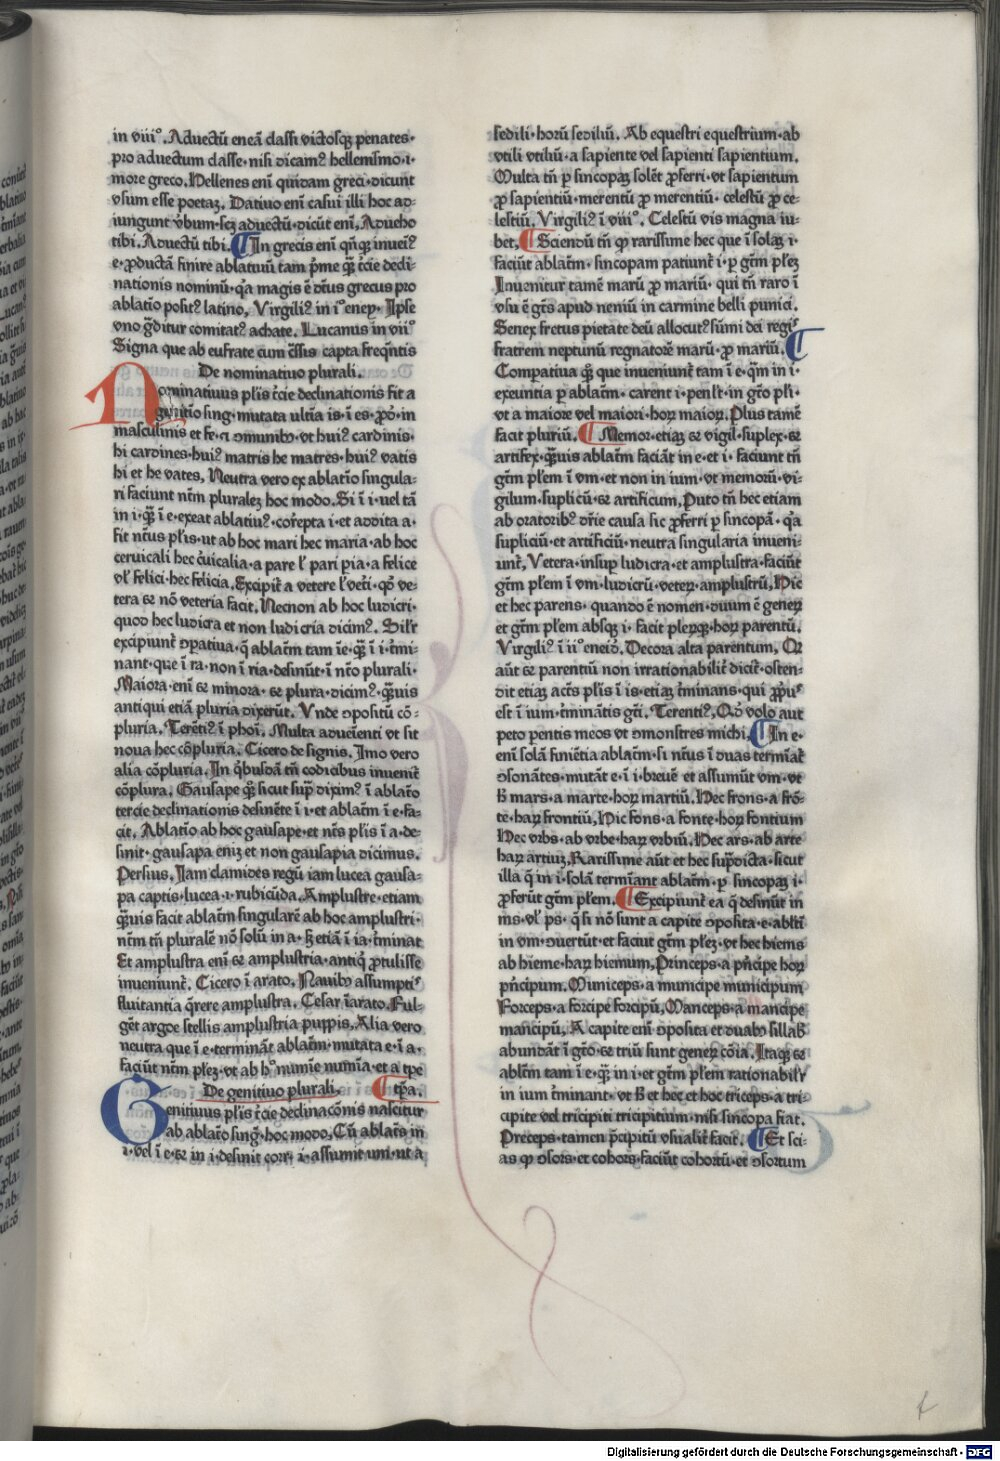 in viii°. Aduectū eneā classi victosqꝫ penates·
pro aduectum classe·nisi dicamꝰ hellenismo·i·
more greco. Hellenes enī quidam greci·dicunt
vsum esse poetaꝫ. Datiuo enī casui illi hoc ad-
iungunt v̄bum·scꝫ aduectū·dicūt enī. Adueho
tibi. Aduectū tibi. ¶ In grecis enī qn̄qꝫ inueīꝰ
e·ꝓductā finire ablatiuū tam p̄me qꝫ̄ t̄cie decli-
nationis nominū·qa magis ē dt̄us grecus pro
ablatīo positꝰ latino. Virgiliꝰ in i° eneyꝰ. Ipse
vno gr̄ditur comitatꝰ achate. Lucanus in vii°
Signa que ab eufrate cum cr̄ssis capta freqn̄tis
De nominatiuo plurali.
Nominatiuus pl̄is t̄cie declinationis fit a
gnītīo sing·mutata ultīa is·ī es·ꝓdꝰ·in
masculinis et fe·cꝫ ↄmunibꝰ·vt huiꝰ cardinis·
hi cardines·huiꝰ matris he matres·huiꝰ vatis
hi et he vates. Neutra vero ex ablatīo singula-
ri faciunt nt̄m pluraleꝫ hoc modo. Si ī i·vel tā
in i·qꝫ̄ ī e·exeat ablatiuꝰ·corepta i·et addita a·
fit nt̄us pl̄is·ut ab hoc mari hec maria·ab hoc
ceruicali hec c̄uicalia·a pare ł pari pia·a felice
vł felici·hec felicia. Excipit̄ a vetere ł vetī·qd̄ ve-
tera ꝛc nō veteria facit. Necnon ab hoc ludicri·
quod hec ludicra et non ludicria dicimꝰ. Silr̄
excipiunt̄ ↄpatiua·q̄ ablatm̄ tam ī e·qꝫ̄ ī i·t̄mi-
nant·que ī ra·non ī ria·desinūt·ī nt̄o plurali·
Maiora·enī ꝛc minora·ꝛc plura·dicimꝰ·qꝫ̄uis
antiqui etiā pluria dixerūt. Vnde ↄpositū cō-
pluria. Terētiꝰ ī phoī. Multa adueīenti vt fit
noua hec cōpluria. Cicero de signis. Imo vero
alia cōpluria. In qͥbusdā tn̄ codicibus inuenit̄
cōplura. Gausape qꝫ̄ sicut sup̄ diximꝰ ī ablatīo
tercie declinationis desinēte ī i·et ablatm̄ ī e·fa-
cit. Ablatīo ab hoc gausape·et nt̄s pl̄is ī a·de-
sinit·gausapa enīꝫ et non gausapia dicimus.
Persius. Iam clamides regū iam lucea gausa-
pa captis·lucea·i·rubicūda. Amplustre·etiam
qꝫ̄uis facit ablatm̄ singularē ab hoc amplustri·
nt̄m tn̄ pluralē nō solū in a·ꝫ etiā ī ia·t̄minat
Et amplustra enī ꝛc amplustria·antiq̄ ꝓtulisse
inueniunt̄. Cicero ī arato. Nauibꝰ assumptiꝰ
fluitantia qͥrere amplustra. Cesar ī arato. Ful-
gēt argoe stellis amplustria puppis. Alia vero
neutra que ī e·terminat̄ ablatm̄·mutata e·ī a·
faciūt nt̄m pl̄eꝫ·vt ab h° numīe numīa·et a tpe
De genitiuo plurali. ¶ tp̄a.
Genitiuus pl̄is t̄cie declinacōnis nascitur
ab ablatīo sing̊·hoc modo. Cū ablat̄s in
i·vel ī e·ꝛc in i·desinit corr̄·i·assumit um·ut a
sedili·horū sediliū. Ab equestri equestrium·ab
vtili vtiliū·a sapiente vel sapienti sapientium.
Multa tn̄ p sincopaꝫ solēt ꝓferri·vt sapientum
ꝓ sapientiū·merentū ꝓ merentiū·celestū ꝓ ce-
lestiū. Virgiliꝰ ī viii°. Celestū vis magna iu-
bet. ¶ Sciendū tn̄ ꝙ rarissime hec que ī solaꝫ i·
faciūt ablatm̄·sincopam patiunt̄ i·p gt̄m pl̄eꝫ
Inuenitur tamē marū ꝓ mariū·qui tn̄ raro ī
vsu ē gt̄s apud neuiū in carmine belli punici.
Senex fretus pietate deū allocutꝰ sūmi dei regiˢ
fratrem neptunū regnatorē marū·ꝓ mariū. ¶
Compatiua qꝫ̄ que inueniunt̄ tam ī e·qꝫ̄ in i·
exeuntia p ablatm̄·carent i·penl̄t·in gt̄o pl̄i·
vt a maiore vel maiori·hoꝝ maioꝝ. Plus tamē
facit pluriū. ¶ Memor·etiaꝫ ꝛc vigil·suplex·ꝛc
artifex·qꝫ̄uis ablatm̄ faciāt in e·et·i·faciunt tn̄
gt̄m pl̄em ī vm·et non in ium·vt memorū·vi-
gilum·suplicū·ꝛc artificum. Puto tn̄ hec etiam
ab oratoribꝰ dr̄ie causa sic ꝓferri p sincopā·qa
supliciū·et artificiū·neutra singularia inueni-
unt̄. Vetera·insup ludicra·et amplustra·faciūt
gt̄m pl̄em ī vm·ludicrū·veteꝝ·amplustrū. Hic
et hec parens·quando ē nomen·duum ē geneꝝ
et gt̄m pl̄em absqꝫ i·facit pleꝝqꝫ·hoꝝ parentū.
Virgiliꝰ ī ii° eneid̄. Decora alta parentum. Qꝫ
aūt ꝛc parentiū non irrationabilit̄ dicit̄·osten-
dit etiaꝫ act̄s pl̄is ī is·etiaꝫ t̄minans·qui ꝓpͥuˢ
est ī ium·t̄minātis gt̄i. Terentiꝰ. Qd̄ volo aut
peto pentis meos vt ↄmonstres michi. ¶ In e·
enī solā finiētia ablatm̄·si nt̄us ī duas termīat
ↄsonātes·mutāt e·ī i·breuē·et assumūt vm·vt
ꝫ mars·a marte·hoꝝ martiū. Hec frons·a frō-
te·haꝝ frontiū. Hic fons·a fonte·hoꝝ fontium
Hec vrbs·ab vrbe·haꝝ vrbiū. Hec ars·ab arte
haꝝ artiuꝫ. Rarissime aūt et hec sup̄dicta·sicut
illa q̄ in i·solā terminant ablatm̄·p sincopaꝫ i·
ꝓferūt gt̄m pl̄em. ¶ Excipiunt̄ ea q̄ desinūt in
ms·vł ps·q̄ si nō sunt a capite ↄposita·e·ablt̄ī
in vm·ↄuertūt·et faciūt gt̄m pl̄eꝫ·vt hec hiems
ab hieme·haꝝ hiemum. Princeps·a pn̄cipe hoꝝ
pn̄cipum. Municeps·a municipe municipum
Forceps·a forcipe forcipū. Manceps·a mancipe
mancipū. A capite enī ↄposita·et duabꝰ sillaꝫ
abundāt ī gt̄o·ꝛc triū sunt geneꝝ cōia. Itaqꝫ ꝛc
ablt̄m tam ī e·qꝫ̄ in i·et gt̄m pl̄em rationabilr̄
in ium t̄minant·vt ꝫ et hec et hoc triceps·a tri-
cipite vel tricipiti tricipitium·nisi sincopa fiat.
Preceps·tamen p̄cipitū vsualit̄ facit. ¶ Et sci-
as ꝙ ↄsors·et cohors·faciūt cohortū·et ↄsortum
Digitalisierung gefördert durch die Deutsche Forschungsgemeinschaft - DFG